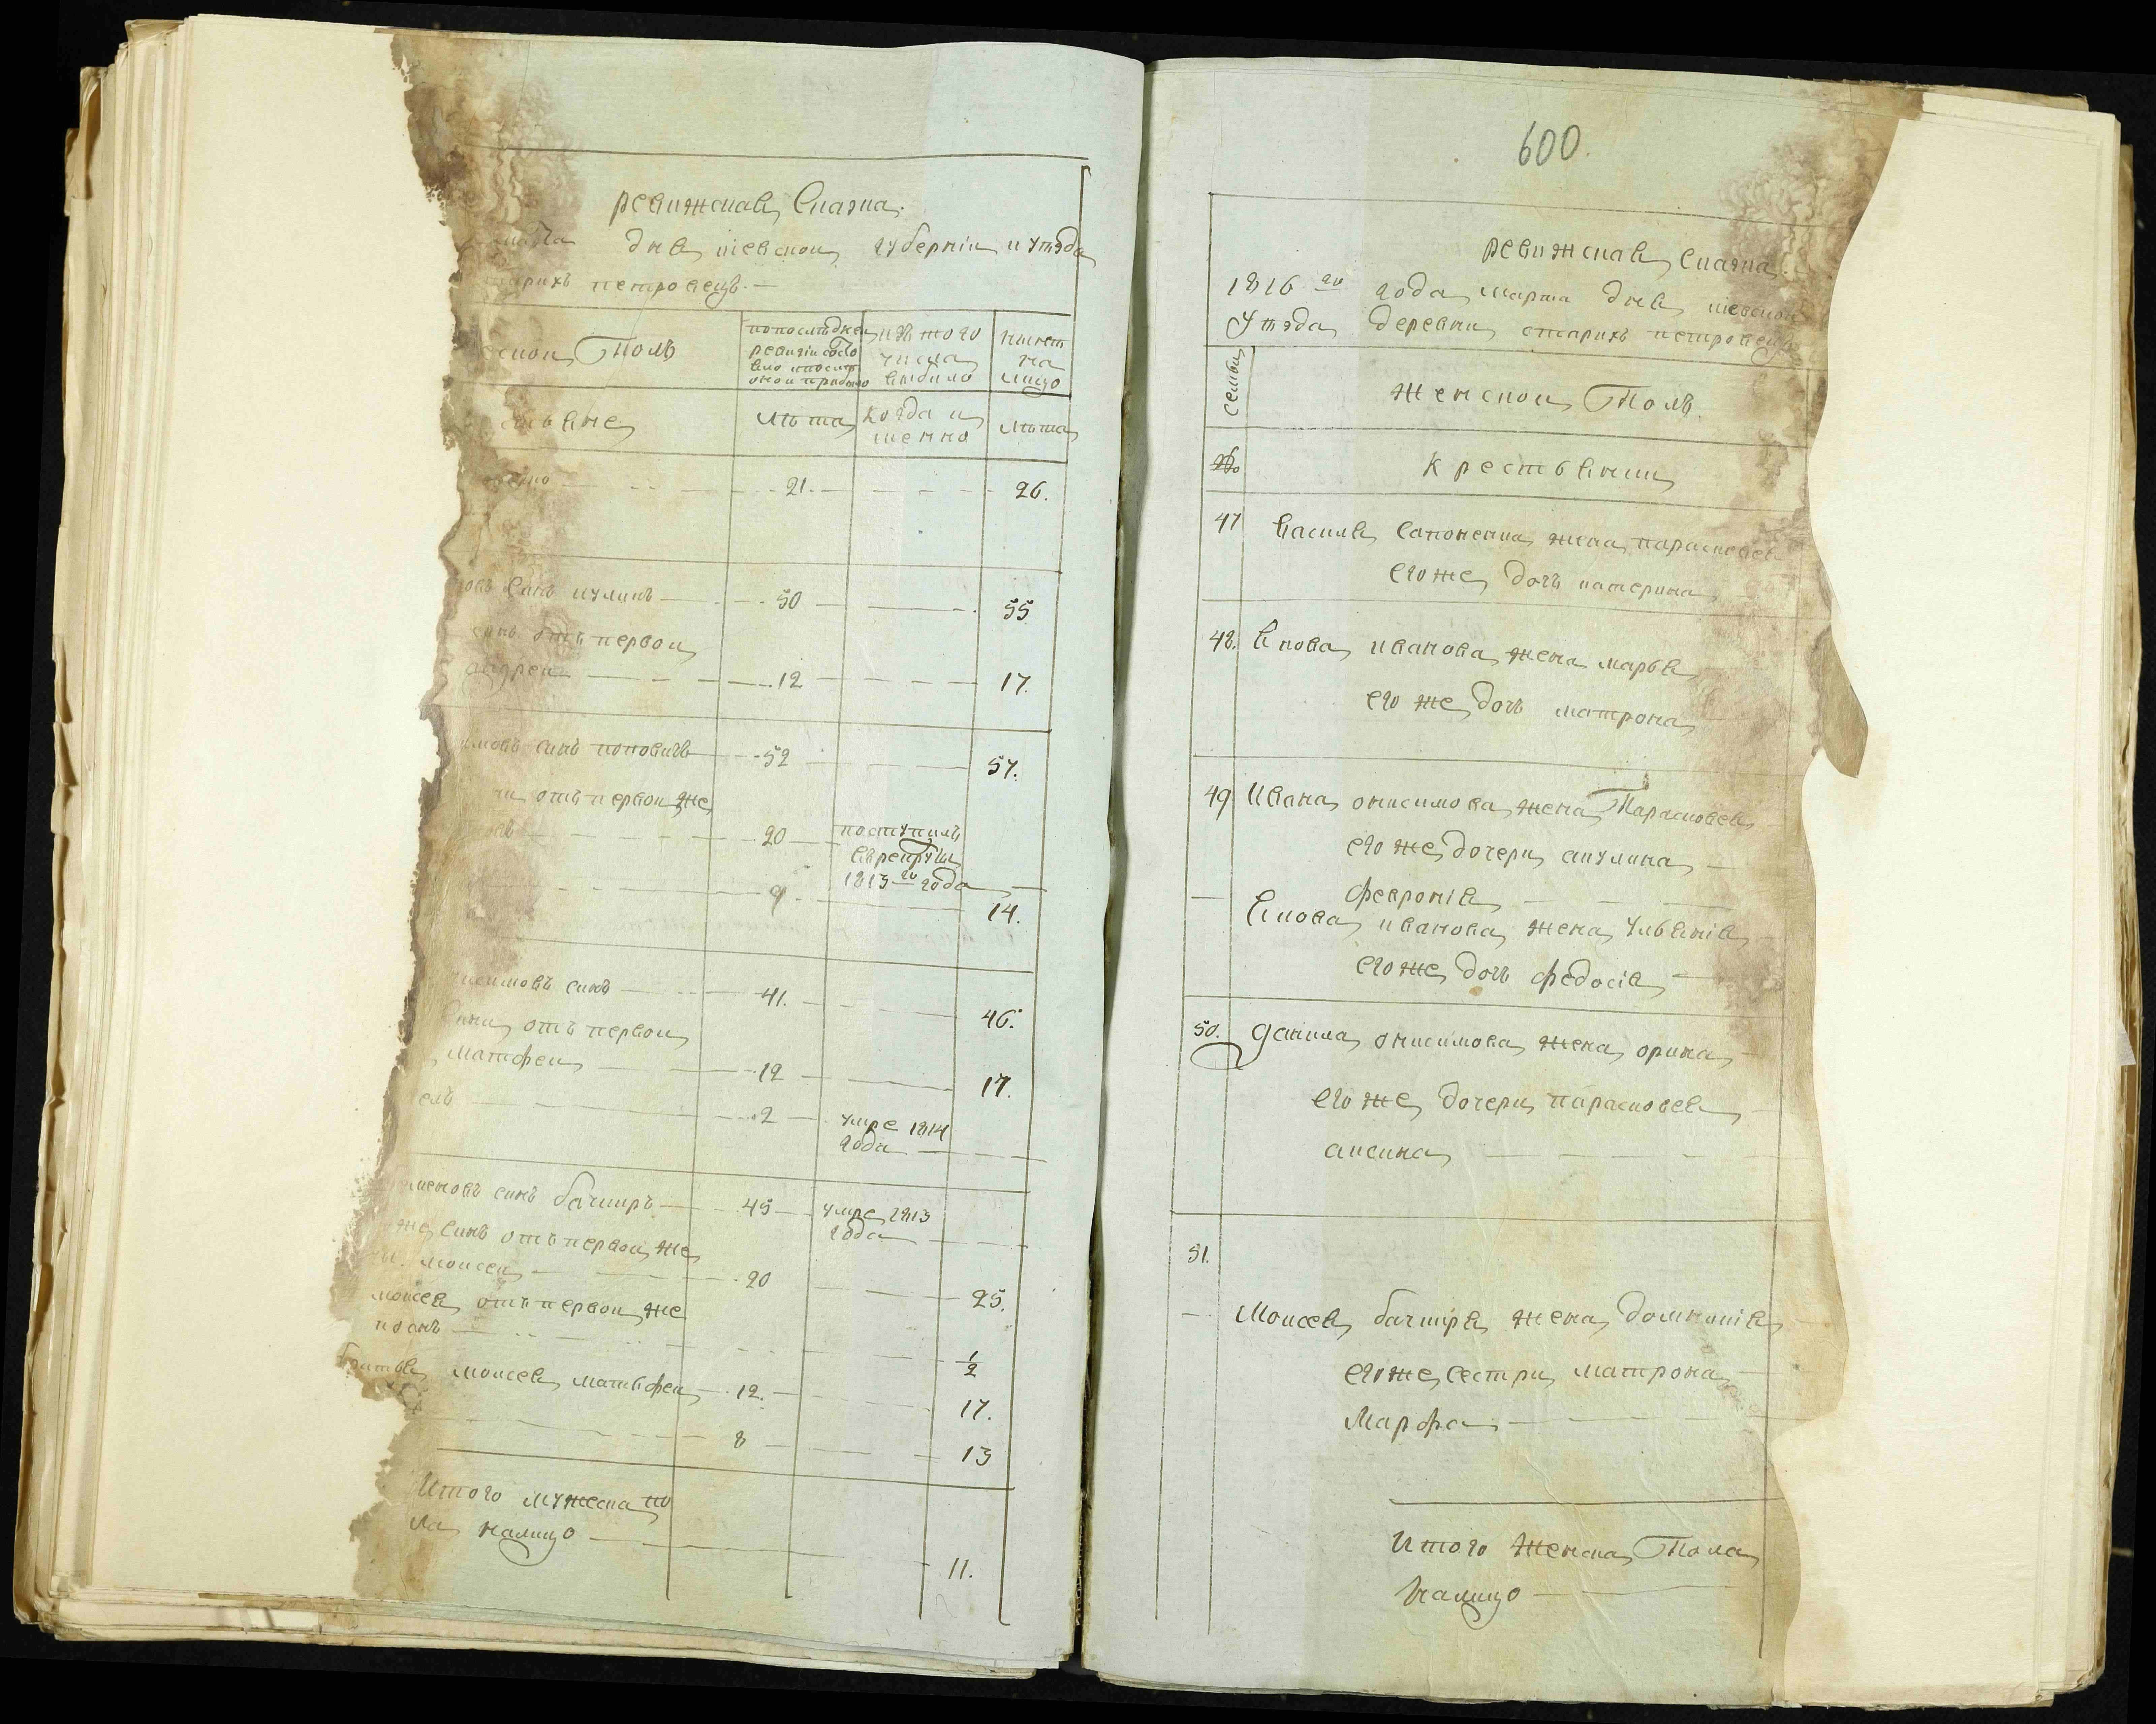 ревижская сказка.
марта дня киевской губернии и уѣзда
старихъ петровецъ.
еской Полъ
попослѣдней ревизіи состояло и после оной прибыло
изъ того числа выбыло
нынѣ на лицо
лѣта
когда и менно
лѣта
21. 26.
овъ синъ куликъ 50 55
синъ отъ первой
андрей 12 17.
имовъ синъ поповичъ 52 57.
отъ первой же
20 поступилъ
в рекруты
1813 го года
9 14.
нисимовъ синъ 41. 46.
сини отъ первой
матфей 12 17.
2 умре 1814
года
меновъ синъ бачиръ 45 умре 1813
года
же синъ отъ первой же
ни моисей 20 25.
моисея отъ первой же
1/2
братья моисея матвѣфей 12. 17.
8 13
Итого мужеска по
ла налицо
11.
600.
ревижская сказка.
1816 го года марта дня киевской
уѣзда деревни старихъ петровецъ
семьи
женской Полъ
крестьянки
47 василя сапоненка жена парасковея
его же дочъ катерина
48. якова иванова жена марья
его же дочъ матрона
49 ивана онисимова жена Парасковея
его же дочери акулина
февронія
якова иванова жена ульянія
его же дочъ федосія
50. данила онисимова жена орина
его же дочери парасковея
аксина
51.
Моисея бачира жена домникія
его же сестри матрона
Марфа
Итого женска Пола
налицо